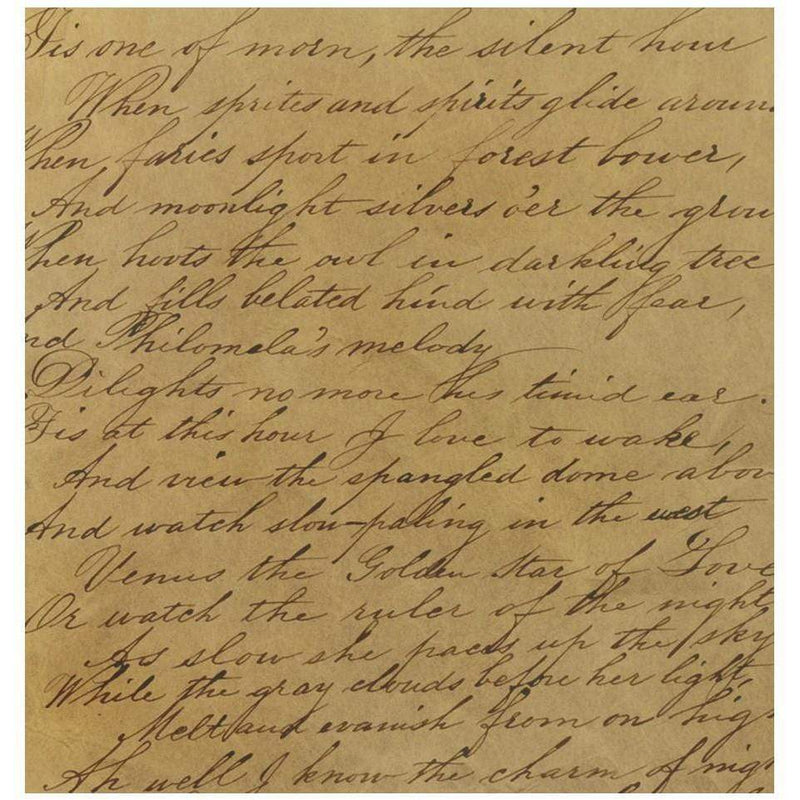 Tis one of morn, the silent hour
When sprites and spirits glide aroun
When faries sport in forest bower,
And moonlight silvers o'er the grou
When hoots the owl in darkling tree
And fills belated hind with fear,
nd Philomela's melody
Dilights no more his timid ear.
Tis at this hour I love to wake,
And view the spangled dome abov
And watch slow-paling in the west
Venus the Golden Star of Love
Or watch the ruler of the night,
As slow she paces up the sky
While the gray clouds before her light,
Melt and evanish from on hig
Ah well I know the charm of nig